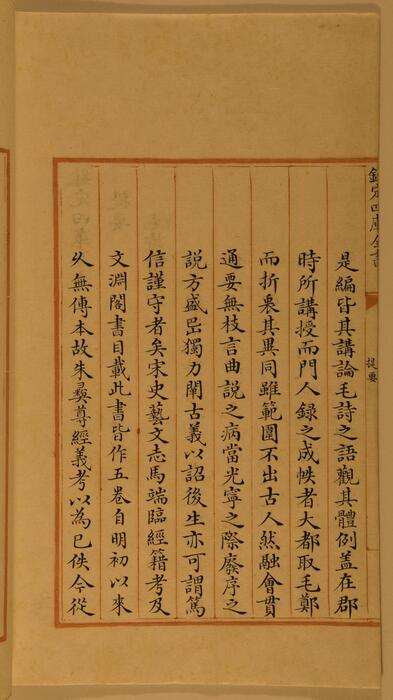 欽定四庫全書
提要
是編皆其講論毛詩之語觀其體例葢在郡
時所講授而門人録之成帙者大都取毛鄭
而折衷其異同雖範圍不出古人然融會貫
通要無枝言曲説之病當光寧之際廢序之
説方盛昌獨力闡古義以詔後生亦可謂篤
信謹守者矣宋史藝文志馬端臨經籍考及
文淵閣書目載此書皆作五卷自明初以來
久無傳本故朱彞尊經義考以為已佚今從